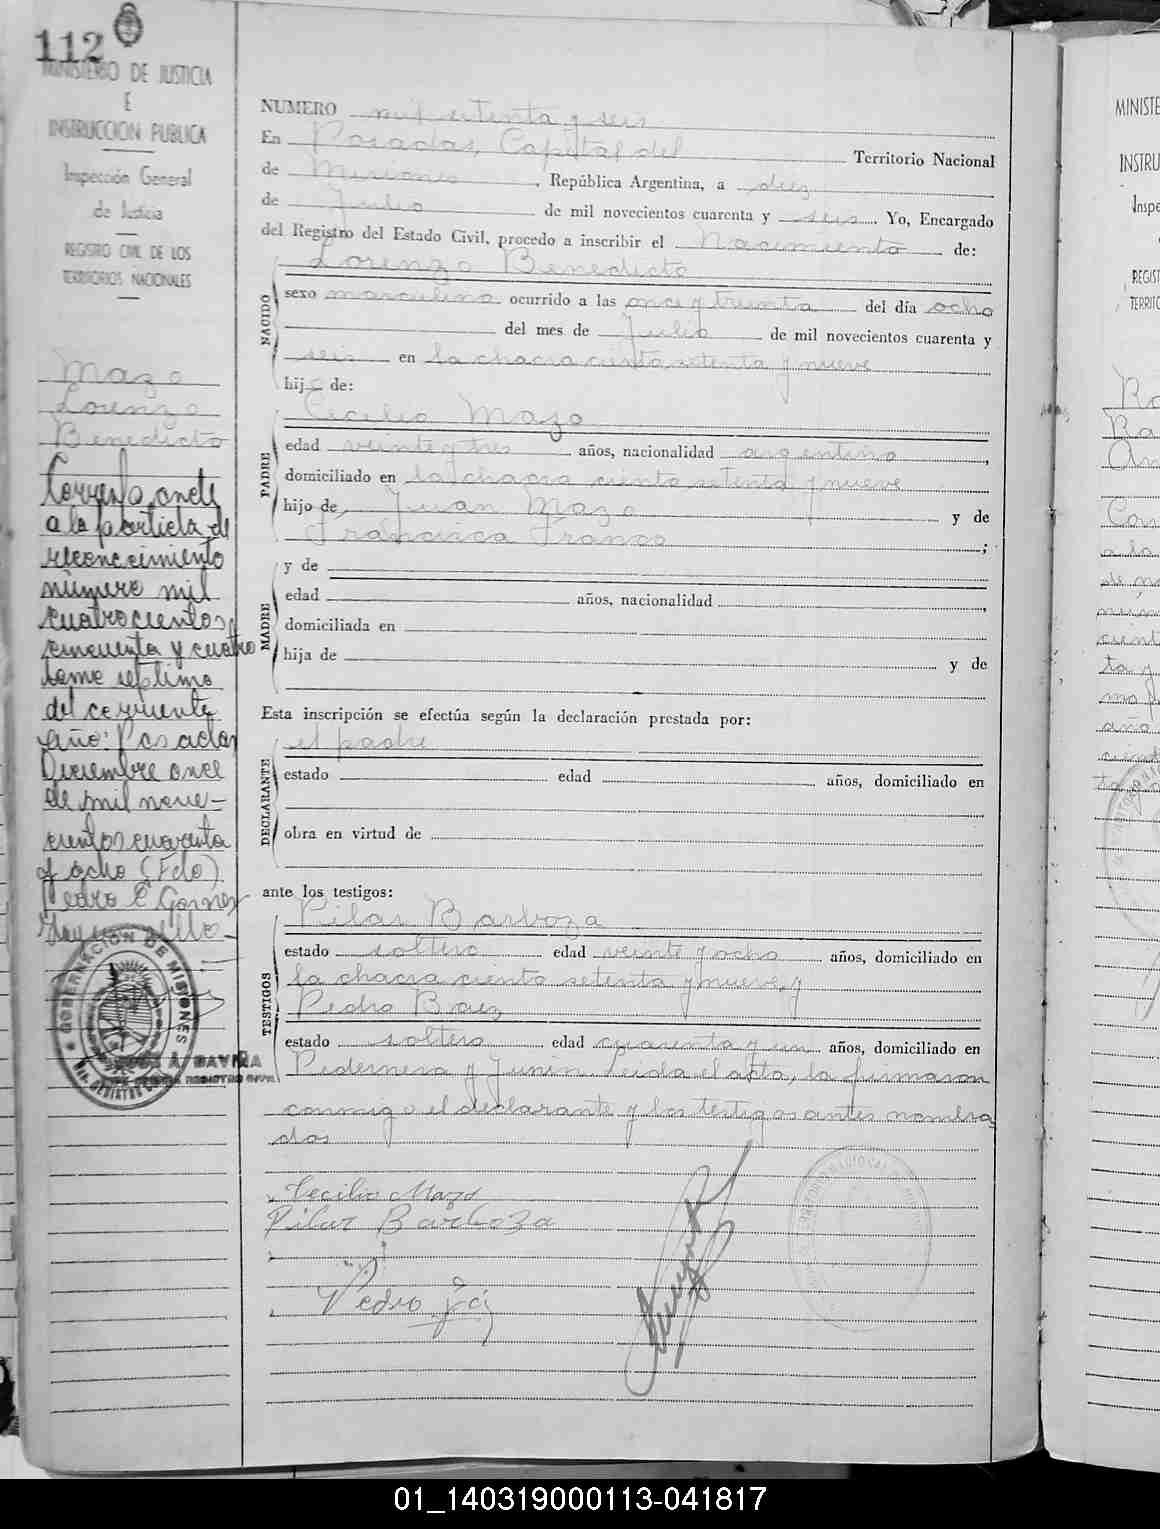 112
MINISTERIO DE JUSTICIA
E
INSTRUCCION PUBLICA
Inspección General
de Justicia
REGISTRO CIVIL DE LOS
TERRITORIOS NACIONALES
Mazo
Lorenzo
Benedicto
Corresponde
a la partida de
reconocimiento
número mil
cuatrocientos
cincuenta y cuatro
tomo septimo
del corriente
año: Posadas
Diciembre once
de mil nove-
cientos cuarenta
y ocho (Fdo)
Pedro E. Gomez
GOBERNACION DE MISIONES
NUMERO mil setenta y seis
En Posadas, Capital del Territorio Nacional
de Misiones, República Argentina, a diez
de Julio de mil novecientos cuarenta y seis Yo, Encargado
del Registro del Estado Civil, procedo a inscribir el Nacimiento de:
NACIDO
Lorenzo Benedicto
sexo masculino ocurrido a las once y treinta del día ocho
del mes de Julio de mil novecientos cuarenta y
seis en la chacra ciento setenta y nueve
hijo de:
PADRE
Cecilio Mazo
edad veinte y tres años, nacionalidad argentino,
domiciliado en la chacra ciento setenta y nueve
hijo de Juan Mazo y de
Francisca Franco;
MADRE
y de
edad años, nacionalidad
domiciliada en
hija de y de
Esta inscripción se efectúa según la declaración prestada por:
DECLARANTE
el padre
estado edad años, domiciliado en
obra en virtud de
ante los testigos:
TESTIGOS
Pilar Barboza
estado soltero edad veinte y ocho años, domiciliado en
la chacra ciento setenta y nueve, y
Pedro Baez
estado soltero edad cuarenta y un años, domiciliado en
Pedernera y Junin. Leida el acta, la firmaron
conmigo el declarante y los testigos antes nombra
dos
Cecilio Mazo
Pilar Barboza
Pedro
01_140319000113-041817